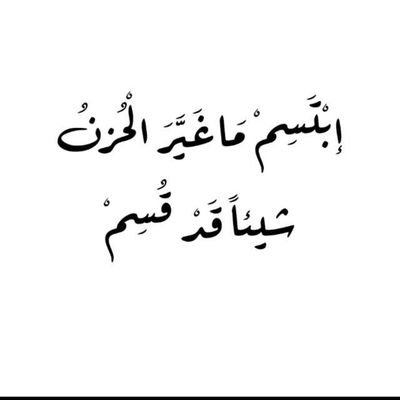 إِبْتَسِمْ مَا غَيَّرَ الْحُزنُ
شيئاً قَدْ قُسِمْ